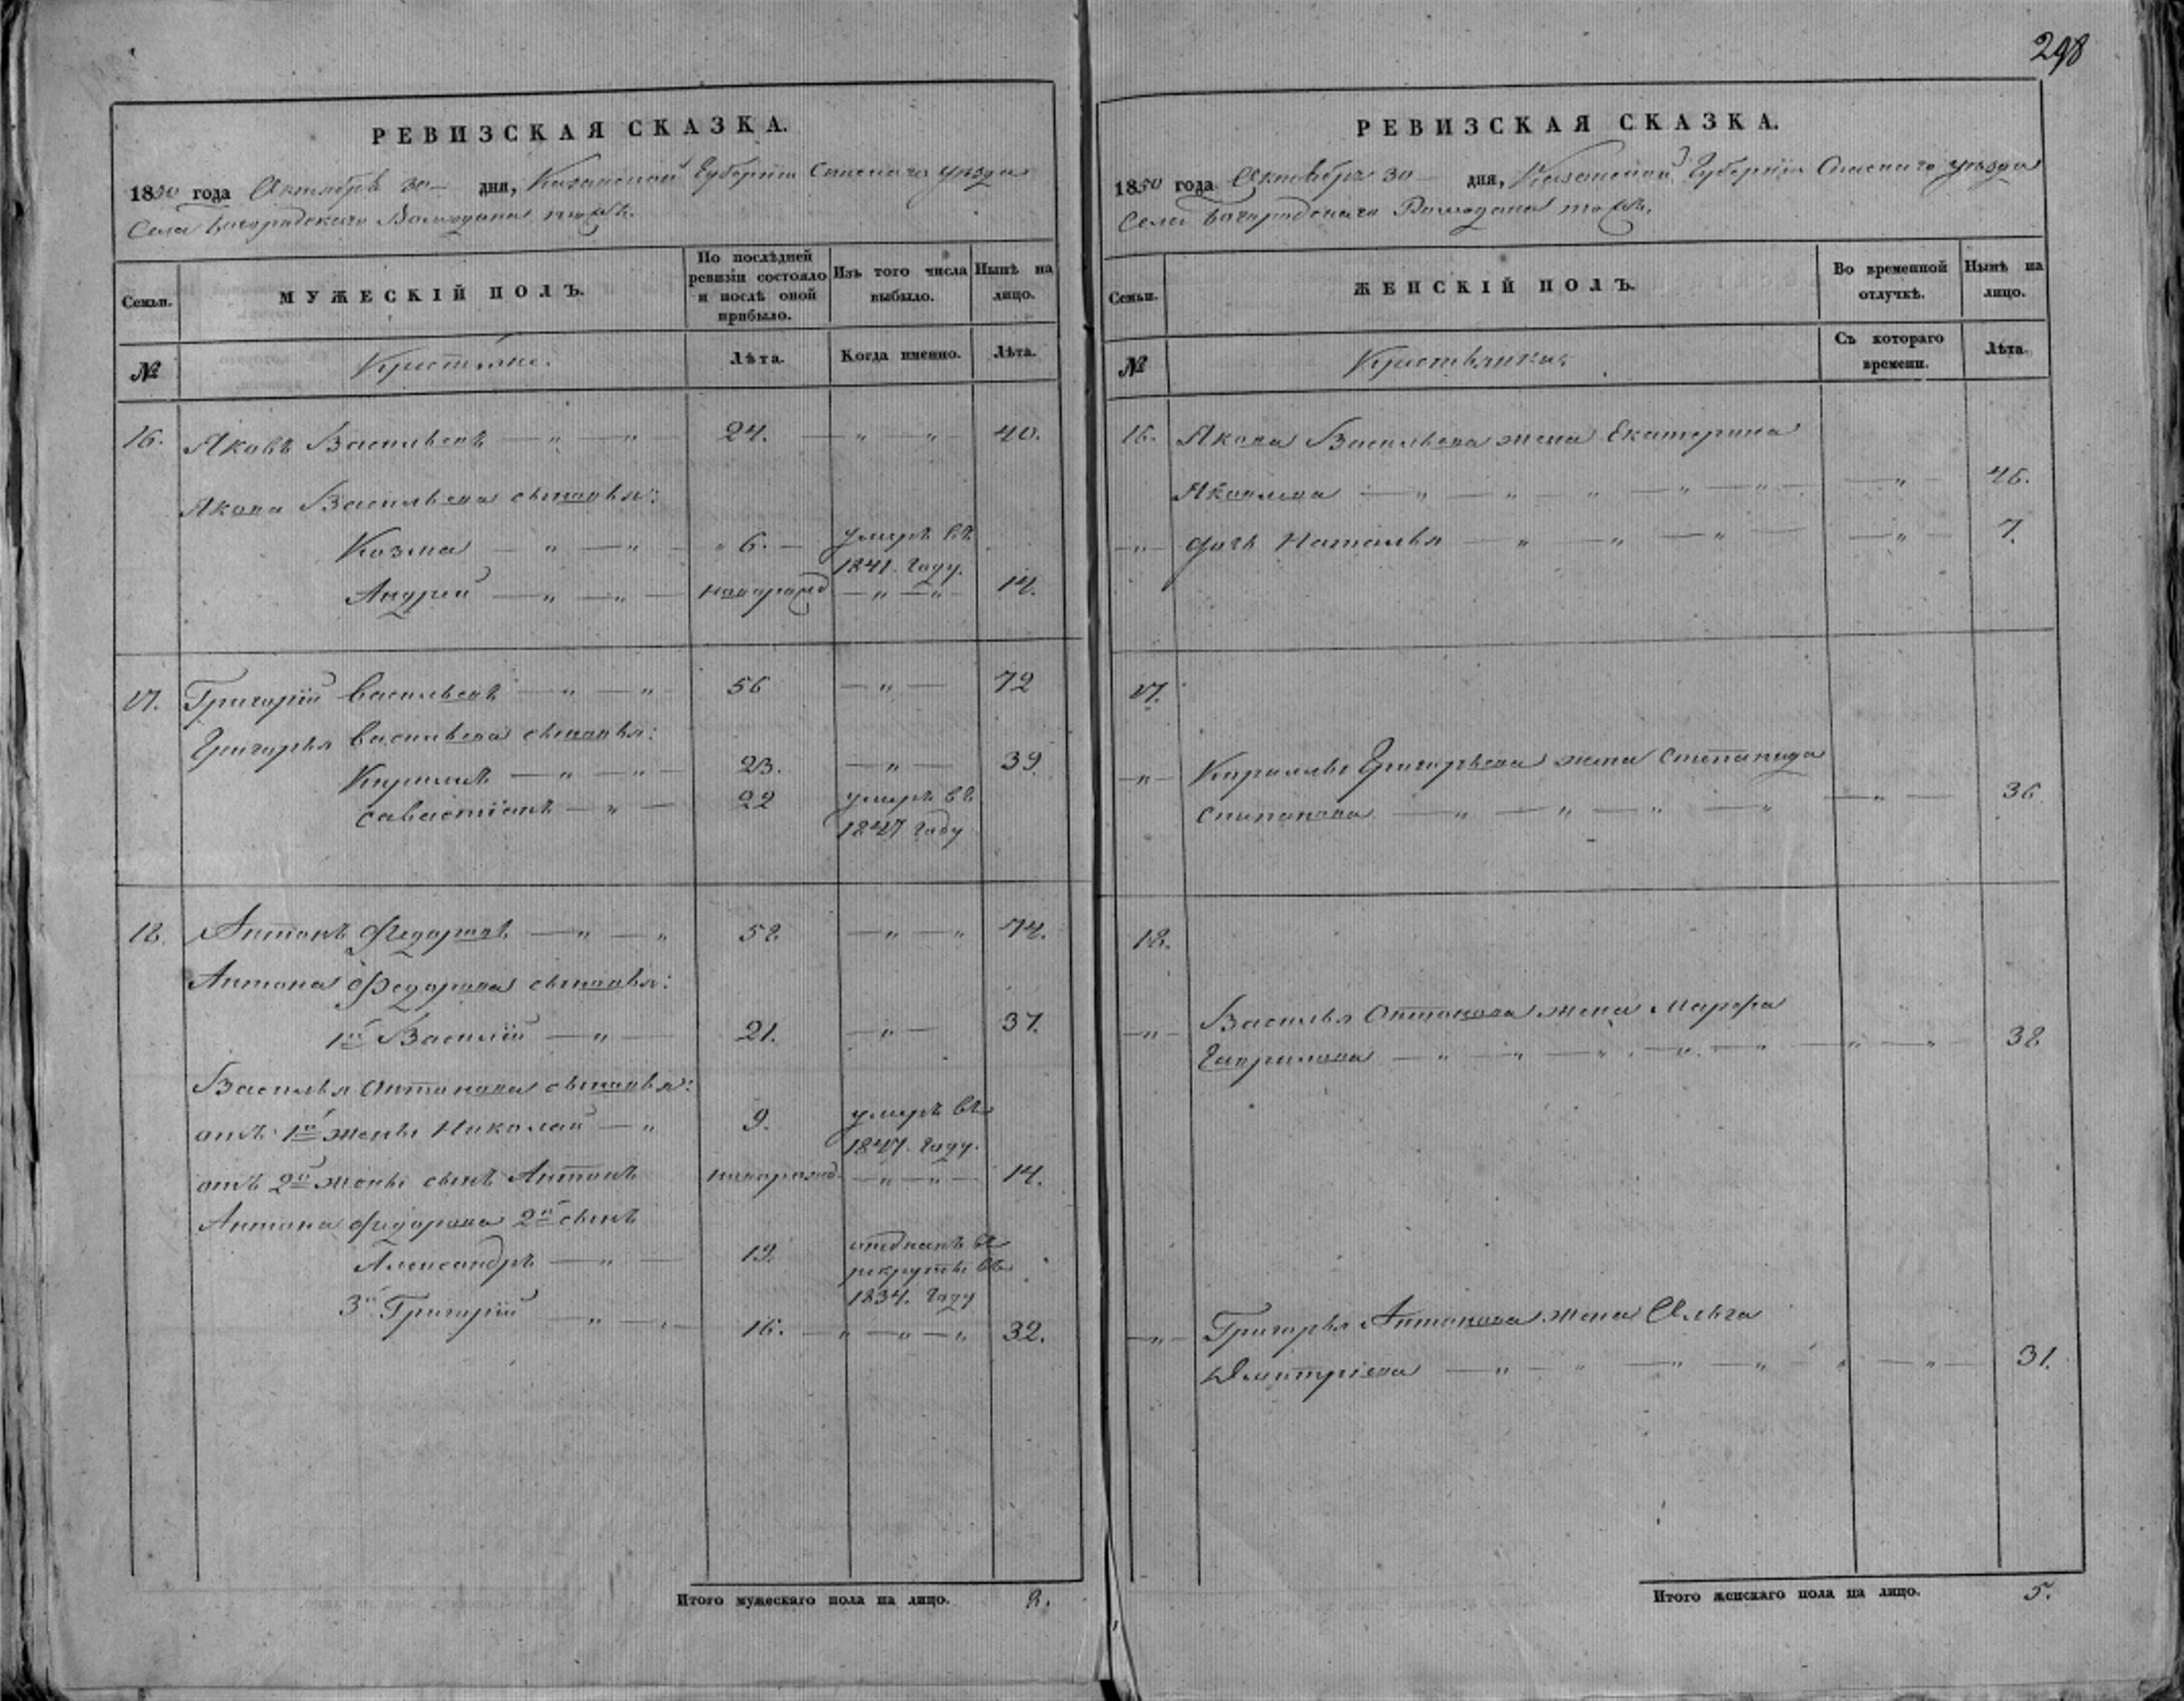 298
РЕВИЗСКАЯ СКАЗКА.
1850 года Октября 30 дня, Казанской Губернiи Спаскаго уѣзда
Села Богородскаго тожъ.
Семьи.
МУЖЕСКIЙ ПОЛЪ.
По послѣдней ревизiи состояло и послѣ оной прибыло.
Изъ того числа выбыло.
Нынѣ на лицо.
№
Крестьяне.
Лѣта.
Когда именно.
Лѣта.
16. Яковъ Васильевъ — „ — „ 24. — „ „ 40.
Якова Васильева сыновья:
Козма — „ — „ — „ 6. — умеръ въ
1841. году.
Андрей — „ — „ — новорожд — „ — „ 14.
17. Григорiй Васильевъ — „ — „ 56 — „ — 72
Григорья Васильева сыновья:
Кирилъ — „ — „ — 23. — „ — 39.
Савастiянъ — „ — 22 умеръ въ
1847 году
18. Антонъ Федоровъ — „ — „ 58 — „ — „ 74.
Антона Федорова сыновья:
1й Василiй — „ — 21. — „ — 37.
Василья Антонова сыновья:
отъ 1й жены Николай — „ 9. умеръ въ
1847. году.
отъ 2й жены сынъ Антонъ новорожд. — „ — „ — 14.
Антона Федорова 2й сынъ
Александръ — „ — 19. отданъ въ
рекруты въ
1834. году
3й Григорiй — „ — „ — 16. — „ — „ — „ 32.
Итого мужескаго пола на лицо. 8.
РЕВИЗСКАЯ СКАЗКА.
1850 года Октября 30 дня, Казанской Губернiи Спаскаго уѣзда
Села Богородскаго тожъ.
Семьи.
ЖЕНСКIЙ ПОЛЪ.
Во временной отлучкѣ.
Нынѣ на лицо.
№
Крестьянки.
Съ котораго времени.
Лѣта.
16. Якова Васильева жена Екатерина
Яковлева — „ — „ — „ — „ — „ — — „ — 46.
— „ — дочь Наталья — „ — „ — „ — — „ — 7.
17.
— „ — Кирилы Григорьева жена Степанида
Степанова — „ — „ — „ — „ — „ — 36
18.
— „ — Василья Антонова жена Марфа
Гаврилова — „ — „ — „ — „ — „ — „ — „ — 38
— „ — Григорья Антонова жена Ольга
Дмитрiева — „ — „ — „ — „ „ — „ — 31.
Итого женскаго пола на лицо. 5.